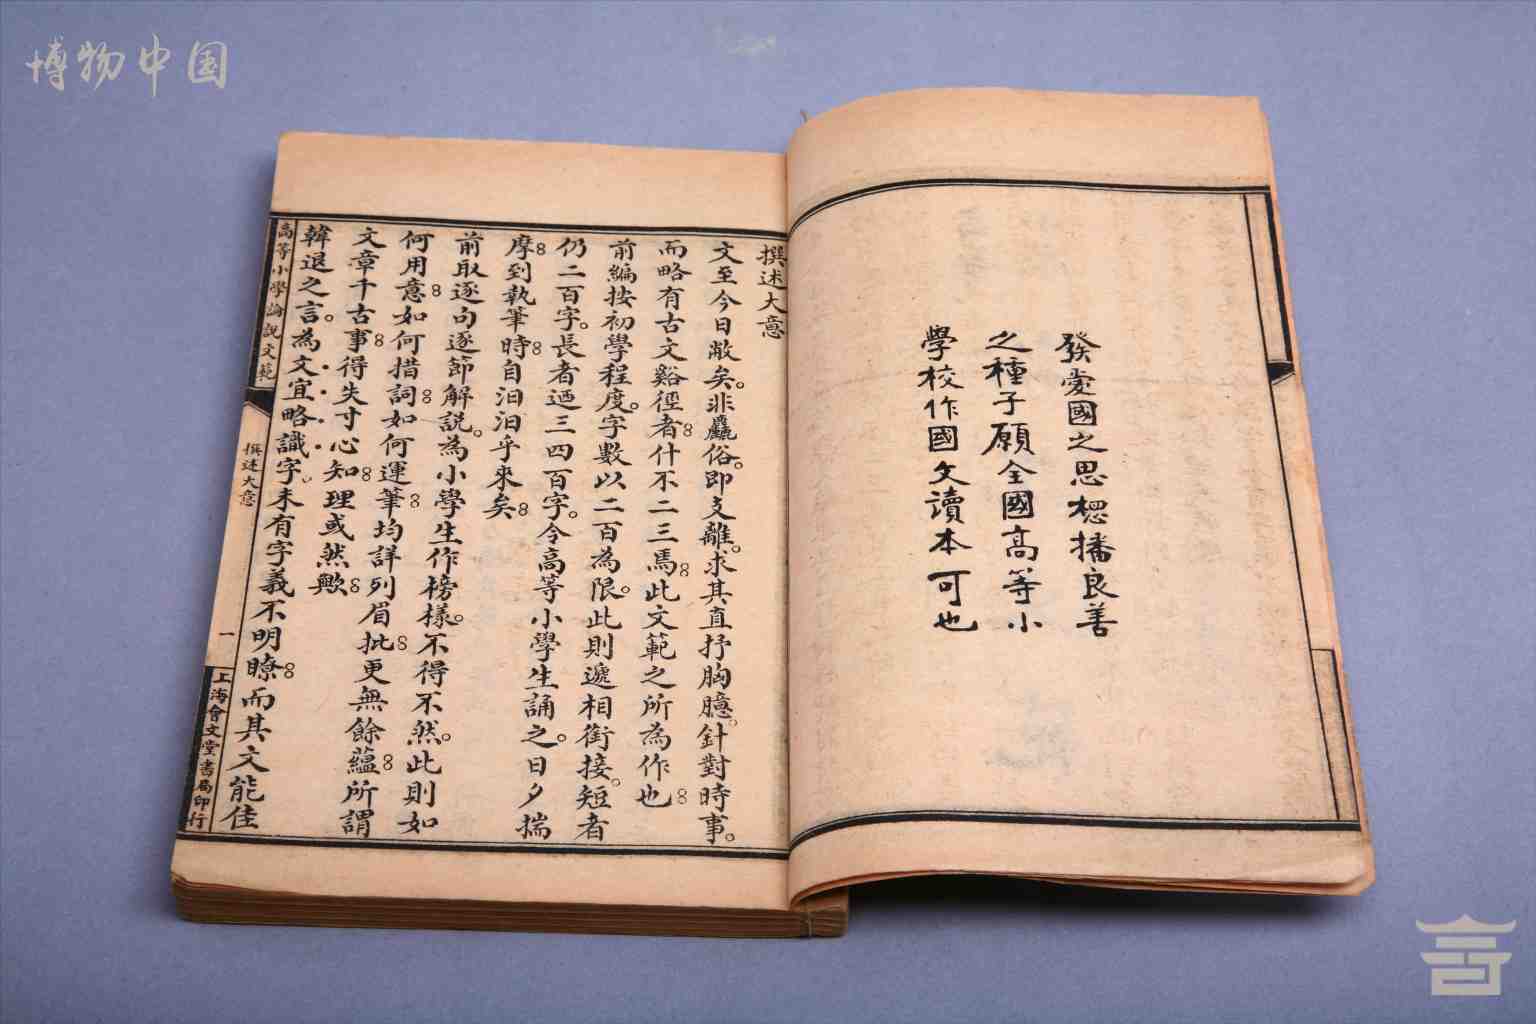 博物中国
發愛國之思想播良善
之種子願全國高等小
學校作國文讀本可也
撰述大意
文至今日敝矣。非麤俗。即支離。求其直抒胸臆。針對時事。
而略有古文谿徑者什不二三焉。此文範之所為作也。
前編按初學程度。字數以二百為限。此則遞相銜接。短者
仍二百字。長者迺三四百字。令高等小學生誦之。日夕揣
摩。到執筆時。自汩汩乎來矣。
前取逐句逐節解說。為小學生作榜樣。不得不然。此則如
何用意。如何措詞。如何運筆。均詳列眉批。更無餘蘊。所謂
文章千古事。得失寸心知。理或然歟。
韓退之言。為文宜略識字。未有字義不明瞭。而其文能佳
高等小學論說文範
撰述大意
一
上海會文堂書局印行